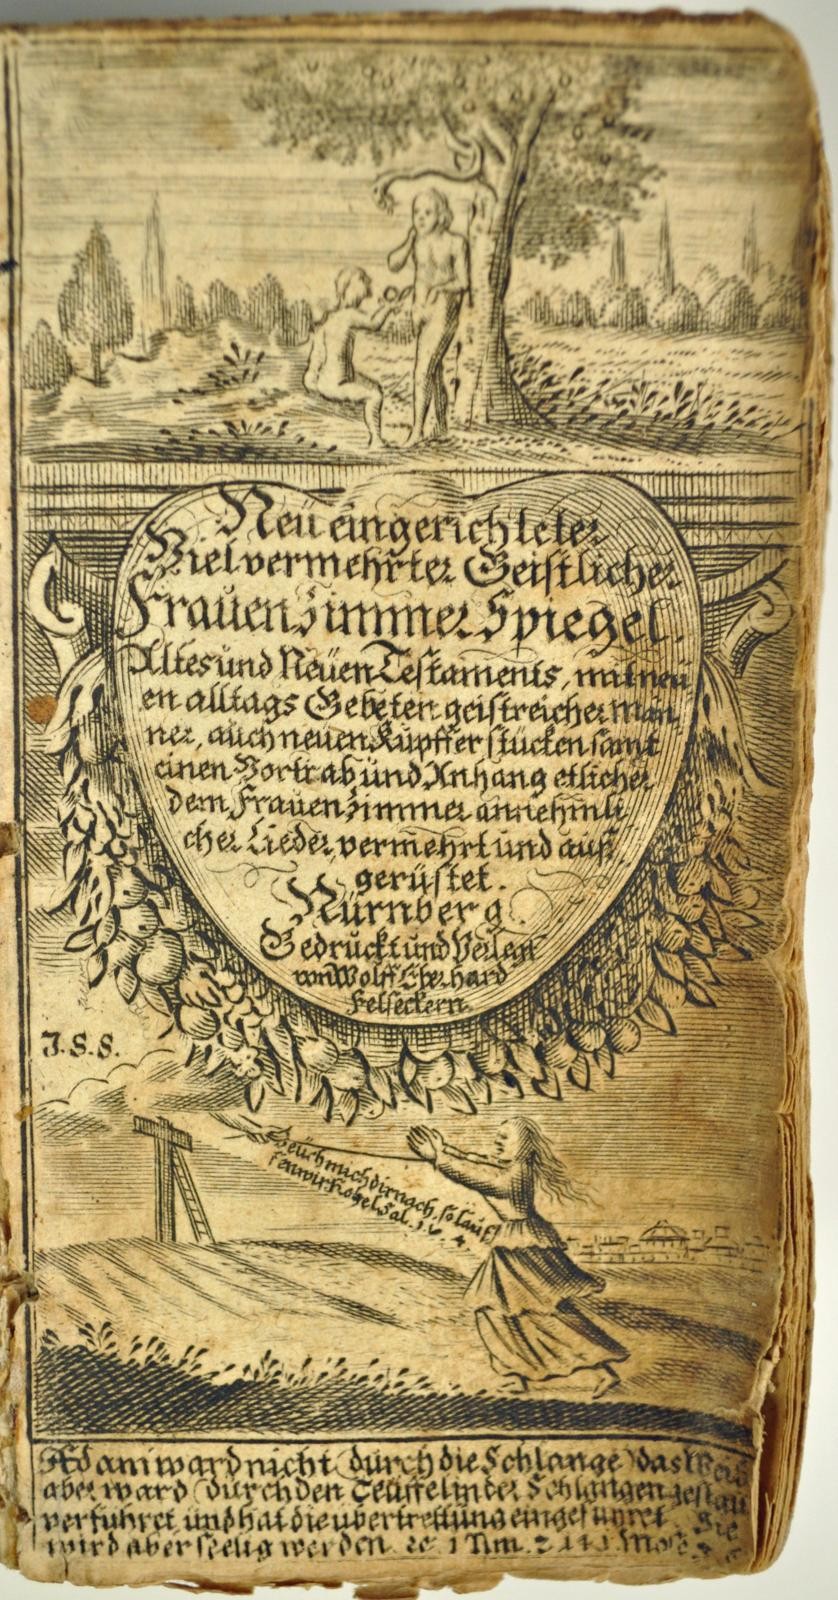 Neu eingerichteter
Vielvermehrter Geistlicher
Frauen Zimmer Spiegel.
Altes und Neuen Testaments, mit neu
en alltags Gebeten geistreicher Män
ner, auch neuen Kupfferstücken samt
einen Vortrab und Anhang etlicher
dem Frauen Zimmer annehmli
cher Lieder, vermehrt und auß
gerüstet.
Nürnberg.
Gedruckt und Verlegt
von Wolff Eberhard
Felseckern.
J. S. S.
Zeüch mich dir nach, so lauf
fen wir. Hohel. Sal. 1, v. 4.
Adam ward nicht durch die Schlange das Weib
aber ward durch den Teüffel in der Schlangen
verführet und hat die ubertrettung eingeführet Sie
wird aber seelig werden. ec 1 Tim. 2